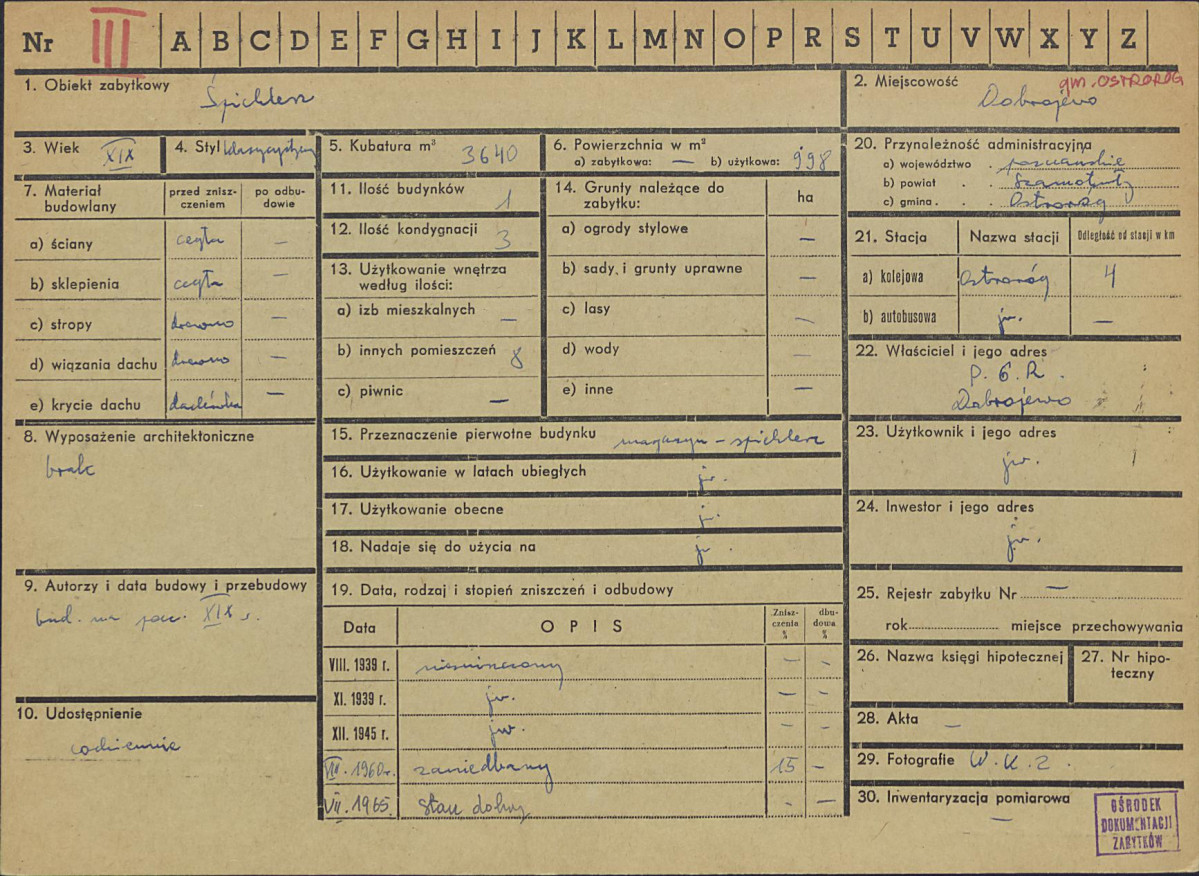 Nr III A B C D E F G H I J K L M N O P R S T U V W X Y Z
1. Obiekt zabytkowy
Spichlerz
2. Miejscowość gm. OSTRORÓG
Dobrojewo
3. Wiek XIX
4. Styl klasycystyczny
5. Kubatura m³ 3640
6. Powierzchnia w m²
a) zabytkowa: — b) użytkowa: 998
7. Materiał budowlany
przed zniszczeniem
po odbudowie
a) ściany cegła —
b) sklepienia cegła —
c) stropy drewno —
d) wiązania dachu drewno —
e) krycie dachu dachówka —
8. Wyposażenie architektoniczne
brak
9. Autorzy i data budowy i przebudowy
bud. na pocz. XIX w.
10. Udostępnienie
codziennie
11. Ilość budynków 1
12. Ilość kondygnacji 3
13. Użytkowanie wnętrza
według ilości:
a) izb mieszkalnych —
b) innych pomieszczeń 8
c) piwnic —
14. Grunty należące do
zabytku:
ha
a) ogrody stylowe —
b) sady i grunty uprawne —
c) lasy —
d) wody —
e) inne —
15. Przeznaczenie pierwotne budynku magazyn – spichlerz
16. Użytkowanie w latach ubiegłych jw.
17. Użytkowanie obecne j.
18. Nadaje się do użycia na jw.
19. Data, rodzaj i stopień zniszczeń i odbudowy
Data
OPIS
Zniszczenia %
dbudowa %
VIII. 1939 r. nieuszkodzony — -
XI. 1939 r. jw. — -
XII. 1945 r. jw. - -
VIII. 1960 r. zaniedbany 15 —
VII. 1965 Stan dobry - —
20. Przynależność administracyjna
a) województwo . poznańskie
b) powiat . . Szamotuły
c) gmina . . . Ostroróg
21. Stacja
Nazwa stacji
Odległość od stacji w km
a) kolejowa Ostroróg 4
b) autobusowa jw. —
22. Właściciel i jego adres
P. G. R.
Dobrojewo
23. Użytkownik i jego adres
jw.
24. Inwestor i jego adres
jw.
25. Rejestr zabytku Nr —
rok miejsce przechowywania
26. Nazwa księgi hipotecznej
27. Nr hipo-
teczny
28. Akta —
29. Fotografie W. K. Z.
30. Inwentaryzacja pomiarowa
—
OŚRODEK
DOKUMENTACJI
ZABYTKÓW